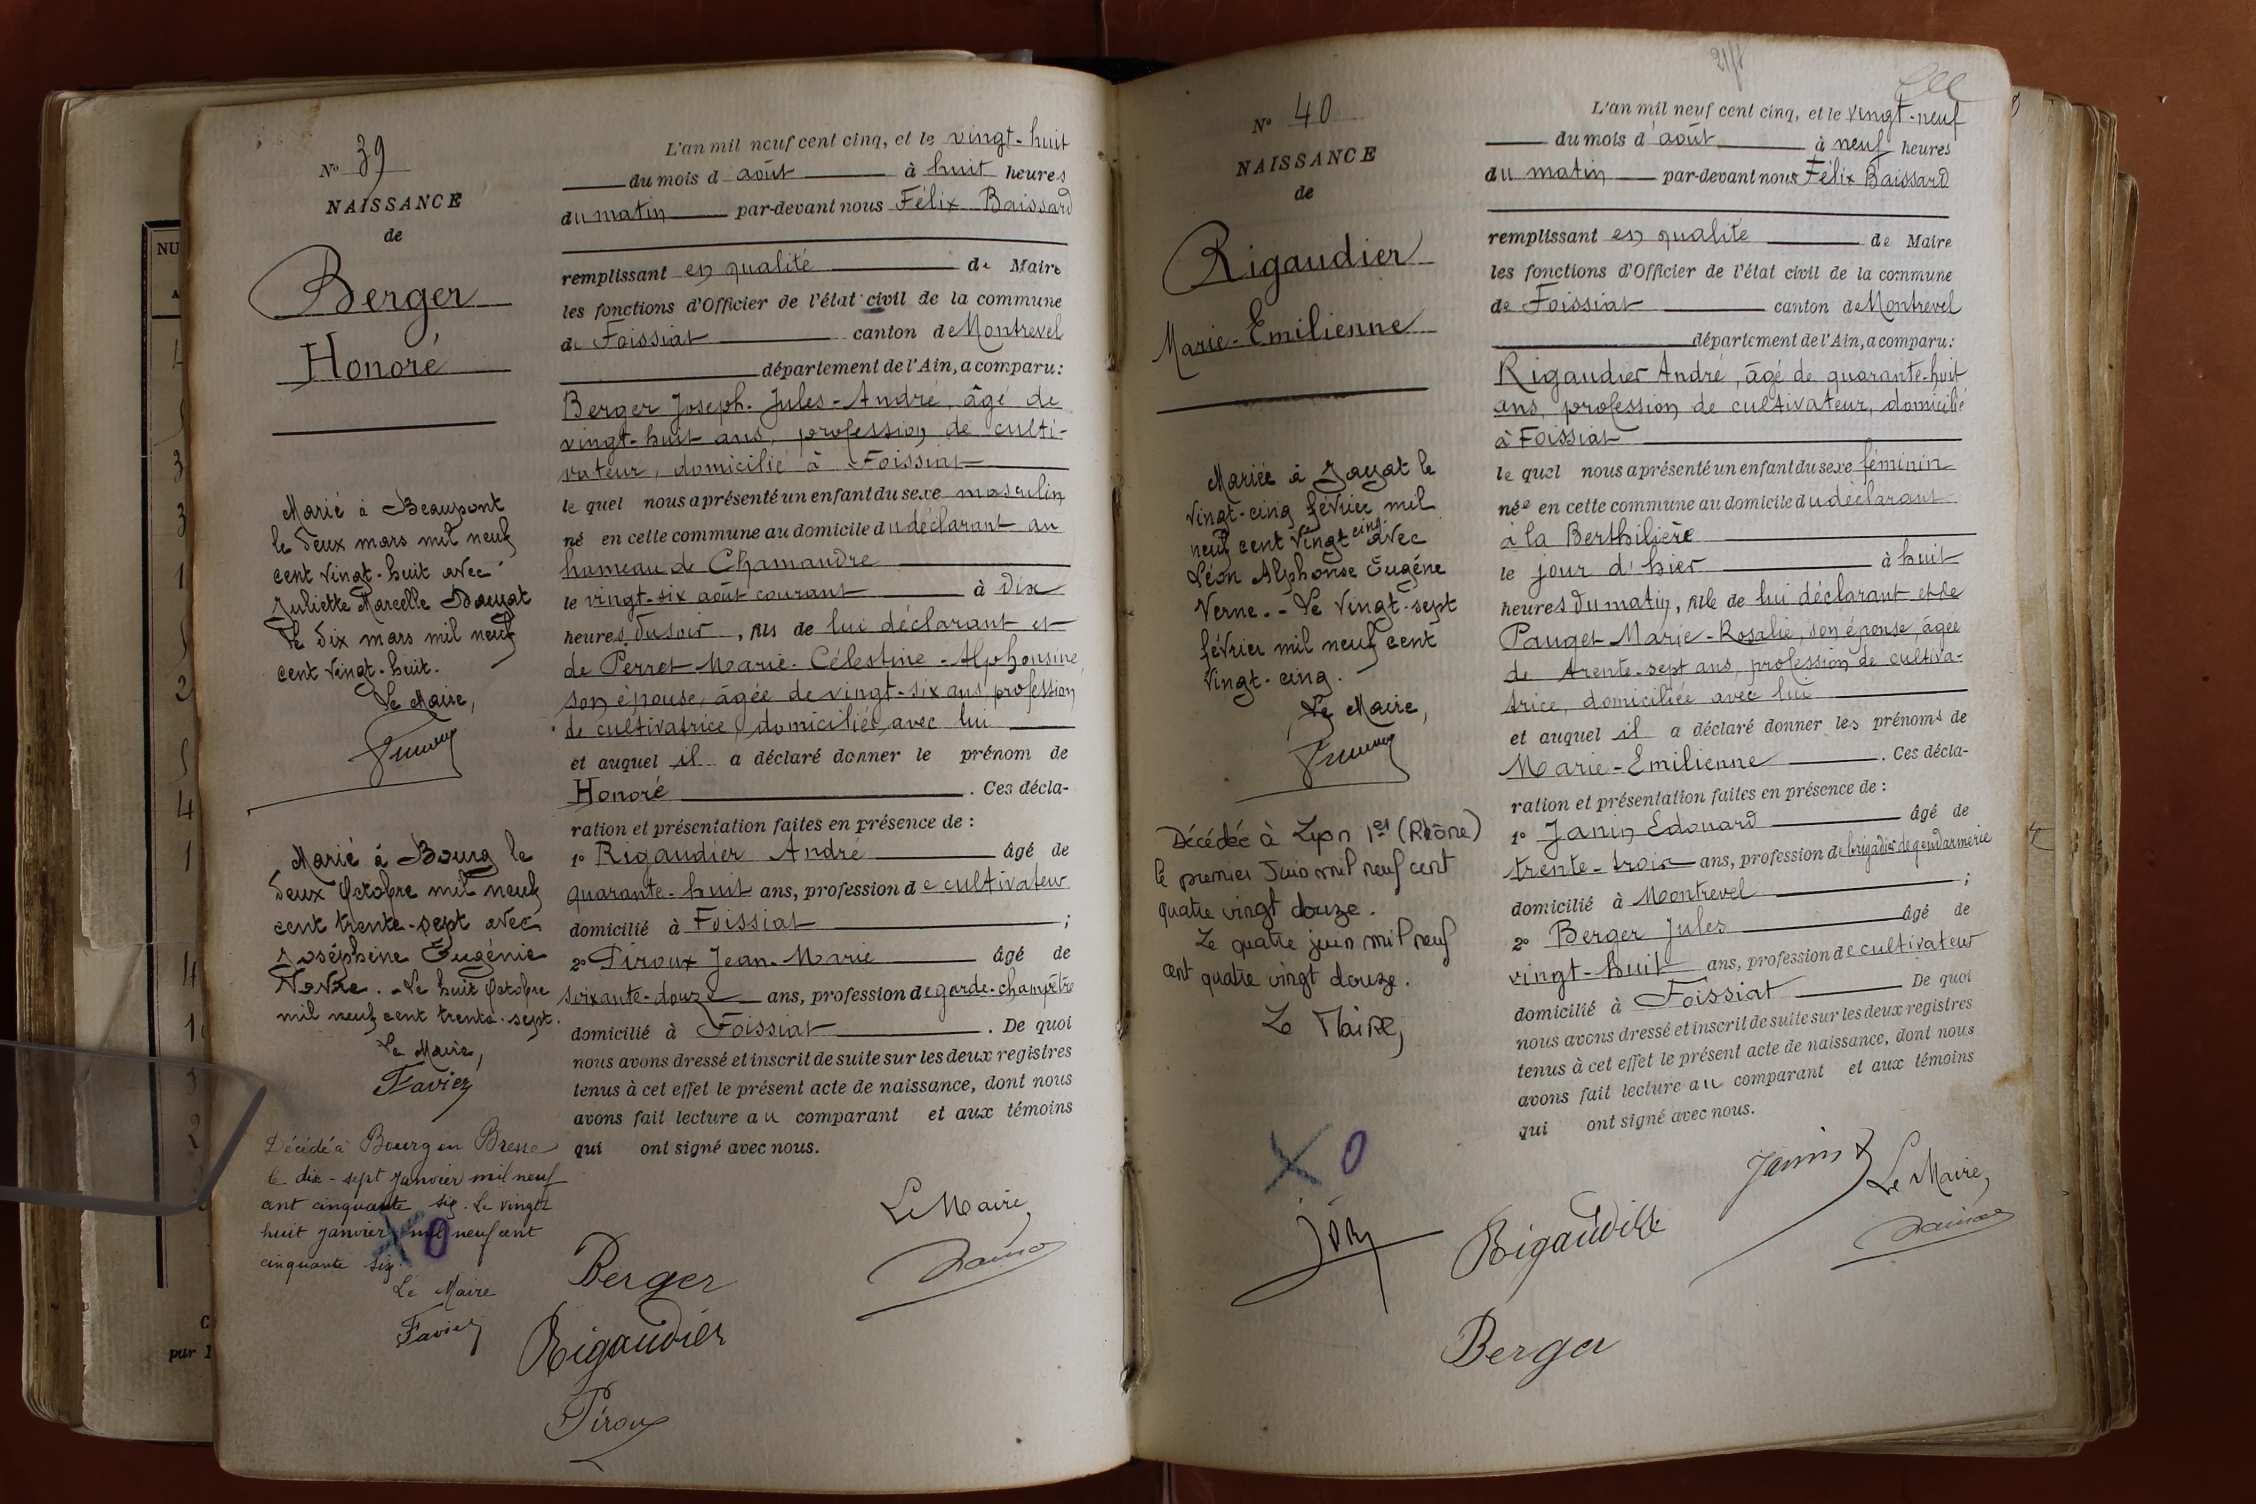 N° 39
NAISSANCE
de
Berger
Honoré
Marié à Beaupont
le deux mars mil neuf
cent vingt-huit avec
Juliette Marcelle
Le dix mars mil neuf
cent vingt-huit.
Le Maire,
Marié à Bourg le
deux Octobre mil neuf
cent trente-sept avec
Joséphine Eugénie
. - Le huit Octobre
mil neuf cent trente-sept.
Le Maire,
Favier
Décédé à Bourg en Bresse
le dix-sept Janvier mil neuf
cent cinquante six. Le vingt
huit janvier mil neuf cent
cinquante six.
Le Maire
Favier
X 0
L'an mil neuf cent cinq, et le vingt-huit
du mois d'août à huit heures
du matin par-devant nous Félix Baissard
remplissant en qualité de Maire
les fonctions d'Officier de l'état civil de la commune
de Foissiat canton de Montrevel
département de l'Ain, a comparu:
Berger Joseph-Jules-André, âgé de
vingt-huit ans, profession de culti-
vateur, domicilié à Foissiat
le quel nous a présenté un enfant du sexe masculin
né en cette commune au domicile du déclarant au
hameau de Chamandre
le vingt-six août courant à dix
heures du soir, fils de lui déclarant et
de Perret Marie-Célestine-Alphonsine,
son épouse, âgée de vingt-six ans, profession
de cultivatrice, domiciliée avec lui
et auquel il a déclaré donner le prénom de
Honoré. Ces décla-
ration et présentation faites en présence de:
1° Rigaudier André âgé de
quarante-huit ans, profession de cultivateur
domicilié à Foissiat;
2° Piroux Jean-Marie âgé de
soixante-douze ans, profession de garde-champêtre
domicilié à Foissiat. De quoi
nous avons dressé et inscrit de suite sur les deux registres
tenus à cet effet le présent acte de naissance, dont nous
avons fait lecture au comparant et aux témoins
qui ont signé avec nous.
Le Maire,
Berger
Rigaudier
Piroux
N° 40
NAISSANCE
de
Rigaudier
Marie-Emilienne
Mariée à Jayat le
vingt-cinq février mil
neuf cent vingt cinq avec
Léon Alphonse Eugène
Verne. - Le vingt-sept
février mil neuf cent
vingt-cinq.
Le Maire,
Décédée à Lyon 1er (Rhône)
le premier Juin mil neuf cent
quatre vingt douze.
Le quatre juin mil neuf
cent quatre vingt douze.
Le Maire,
X 0
L'an mil neuf cent cinq, et le vingt-neuf
du mois d'août à neuf heures
du matin par-devant nous Félix Baissard
remplissant en qualité de Maire
les fonctions d'Officier de l'état civil de la commune
de Foissiat canton de Montrevel
département de l'Ain, a comparu:
Rigaudier André, âgé de quarante-huit
ans, profession de cultivateur, domicilié
à Foissiat
le quel nous a présenté un enfant du sexe féminin
née en cette commune au domicile du déclarant
à la Berthilière
le jour d'hier à huit
heures du matin, fille de lui déclarant et de
Pauget Marie-Rosalie, son épouse, âgée
de trente-sept ans, profession de cultiva-
trice, domiciliée avec lui
et auquel il a déclaré donner les prénoms de
Marie-Emilienne. Ces décla-
ration et présentation faites en présence de:
1° Janin Edouard âgé de
trente-trois ans, profession de brigadier de gendarmerie
domicilié à Montrevel;
2° Berger Jules âgé de
vingt-huit ans, profession de cultivateur
domicilié à Foissiat De quoi
nous avons dressé et inscrit de suite sur les deux registres
tenus à cet effet le présent acte de naissance, dont nous
avons fait lecture au comparant et aux témoins
qui ont signé avec nous.
Janin
Le Maire,
Rigaudier
Berger